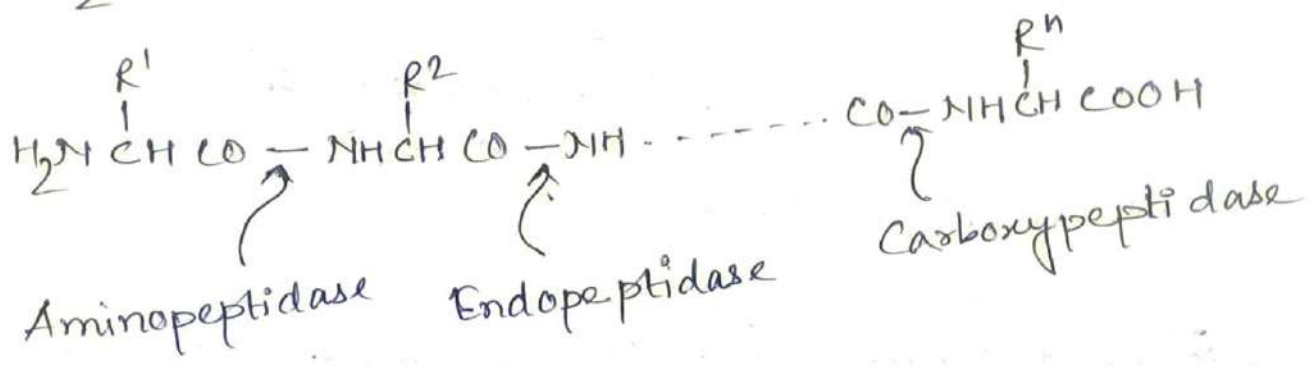 R¹ R² Rⁿ
H₂N CH CO — NH CH CO — NH - - - - - - - CO — NH CH COOH
Aminopeptidase Endopeptidase Carboxypeptidase